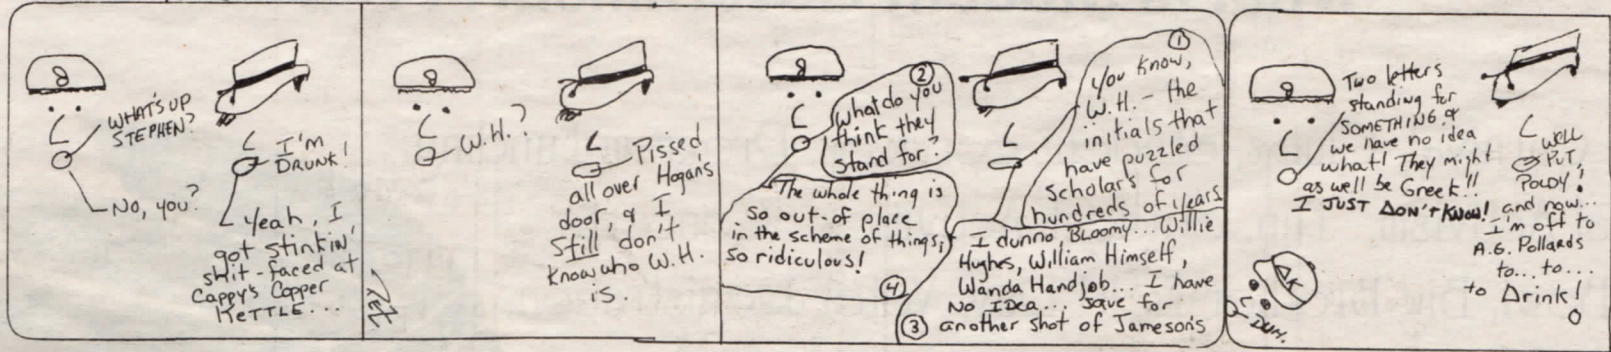 WHAT'S UP
STEPHEN?
I'M
DRUNK!
NO, YOU?
Yeah, I
got stinkin'
shit-faced at
Cappy's Copper
KETTLE...
W.H.?
Pissed
all over Hogan's
door, & I
Still don't
know who W.H.
is.
①
you know,
W.H. - the
initials that
have puzzled
scholars for
hundreds of years
②
What do you
think they
stand for?
I dunno, BLOOMY... Willie
Hughes, William Himself,
Wanda Handjob... I have
NO IDEA... save for
③ another shot of Jameson's
The whole thing is
so out-of place
in the scheme of things,
so ridiculous!
④
Two letters
standing for
SOMETHING &
we have no idea
what! They might
as well be Greek!!
I JUST DON'T KNOW!
WELL
PUT,
POLDY!
and now...
I'm off to
A.G. Pollards
to... to...
to Drink!
ΔK
DUH.